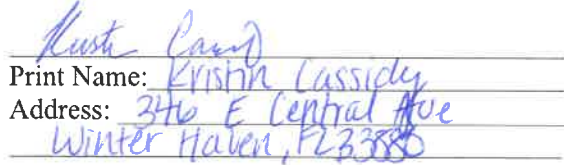 Print Name: Kristin Cassidy
Address: 346 E Central Ave
Winter Haven, FL 33880